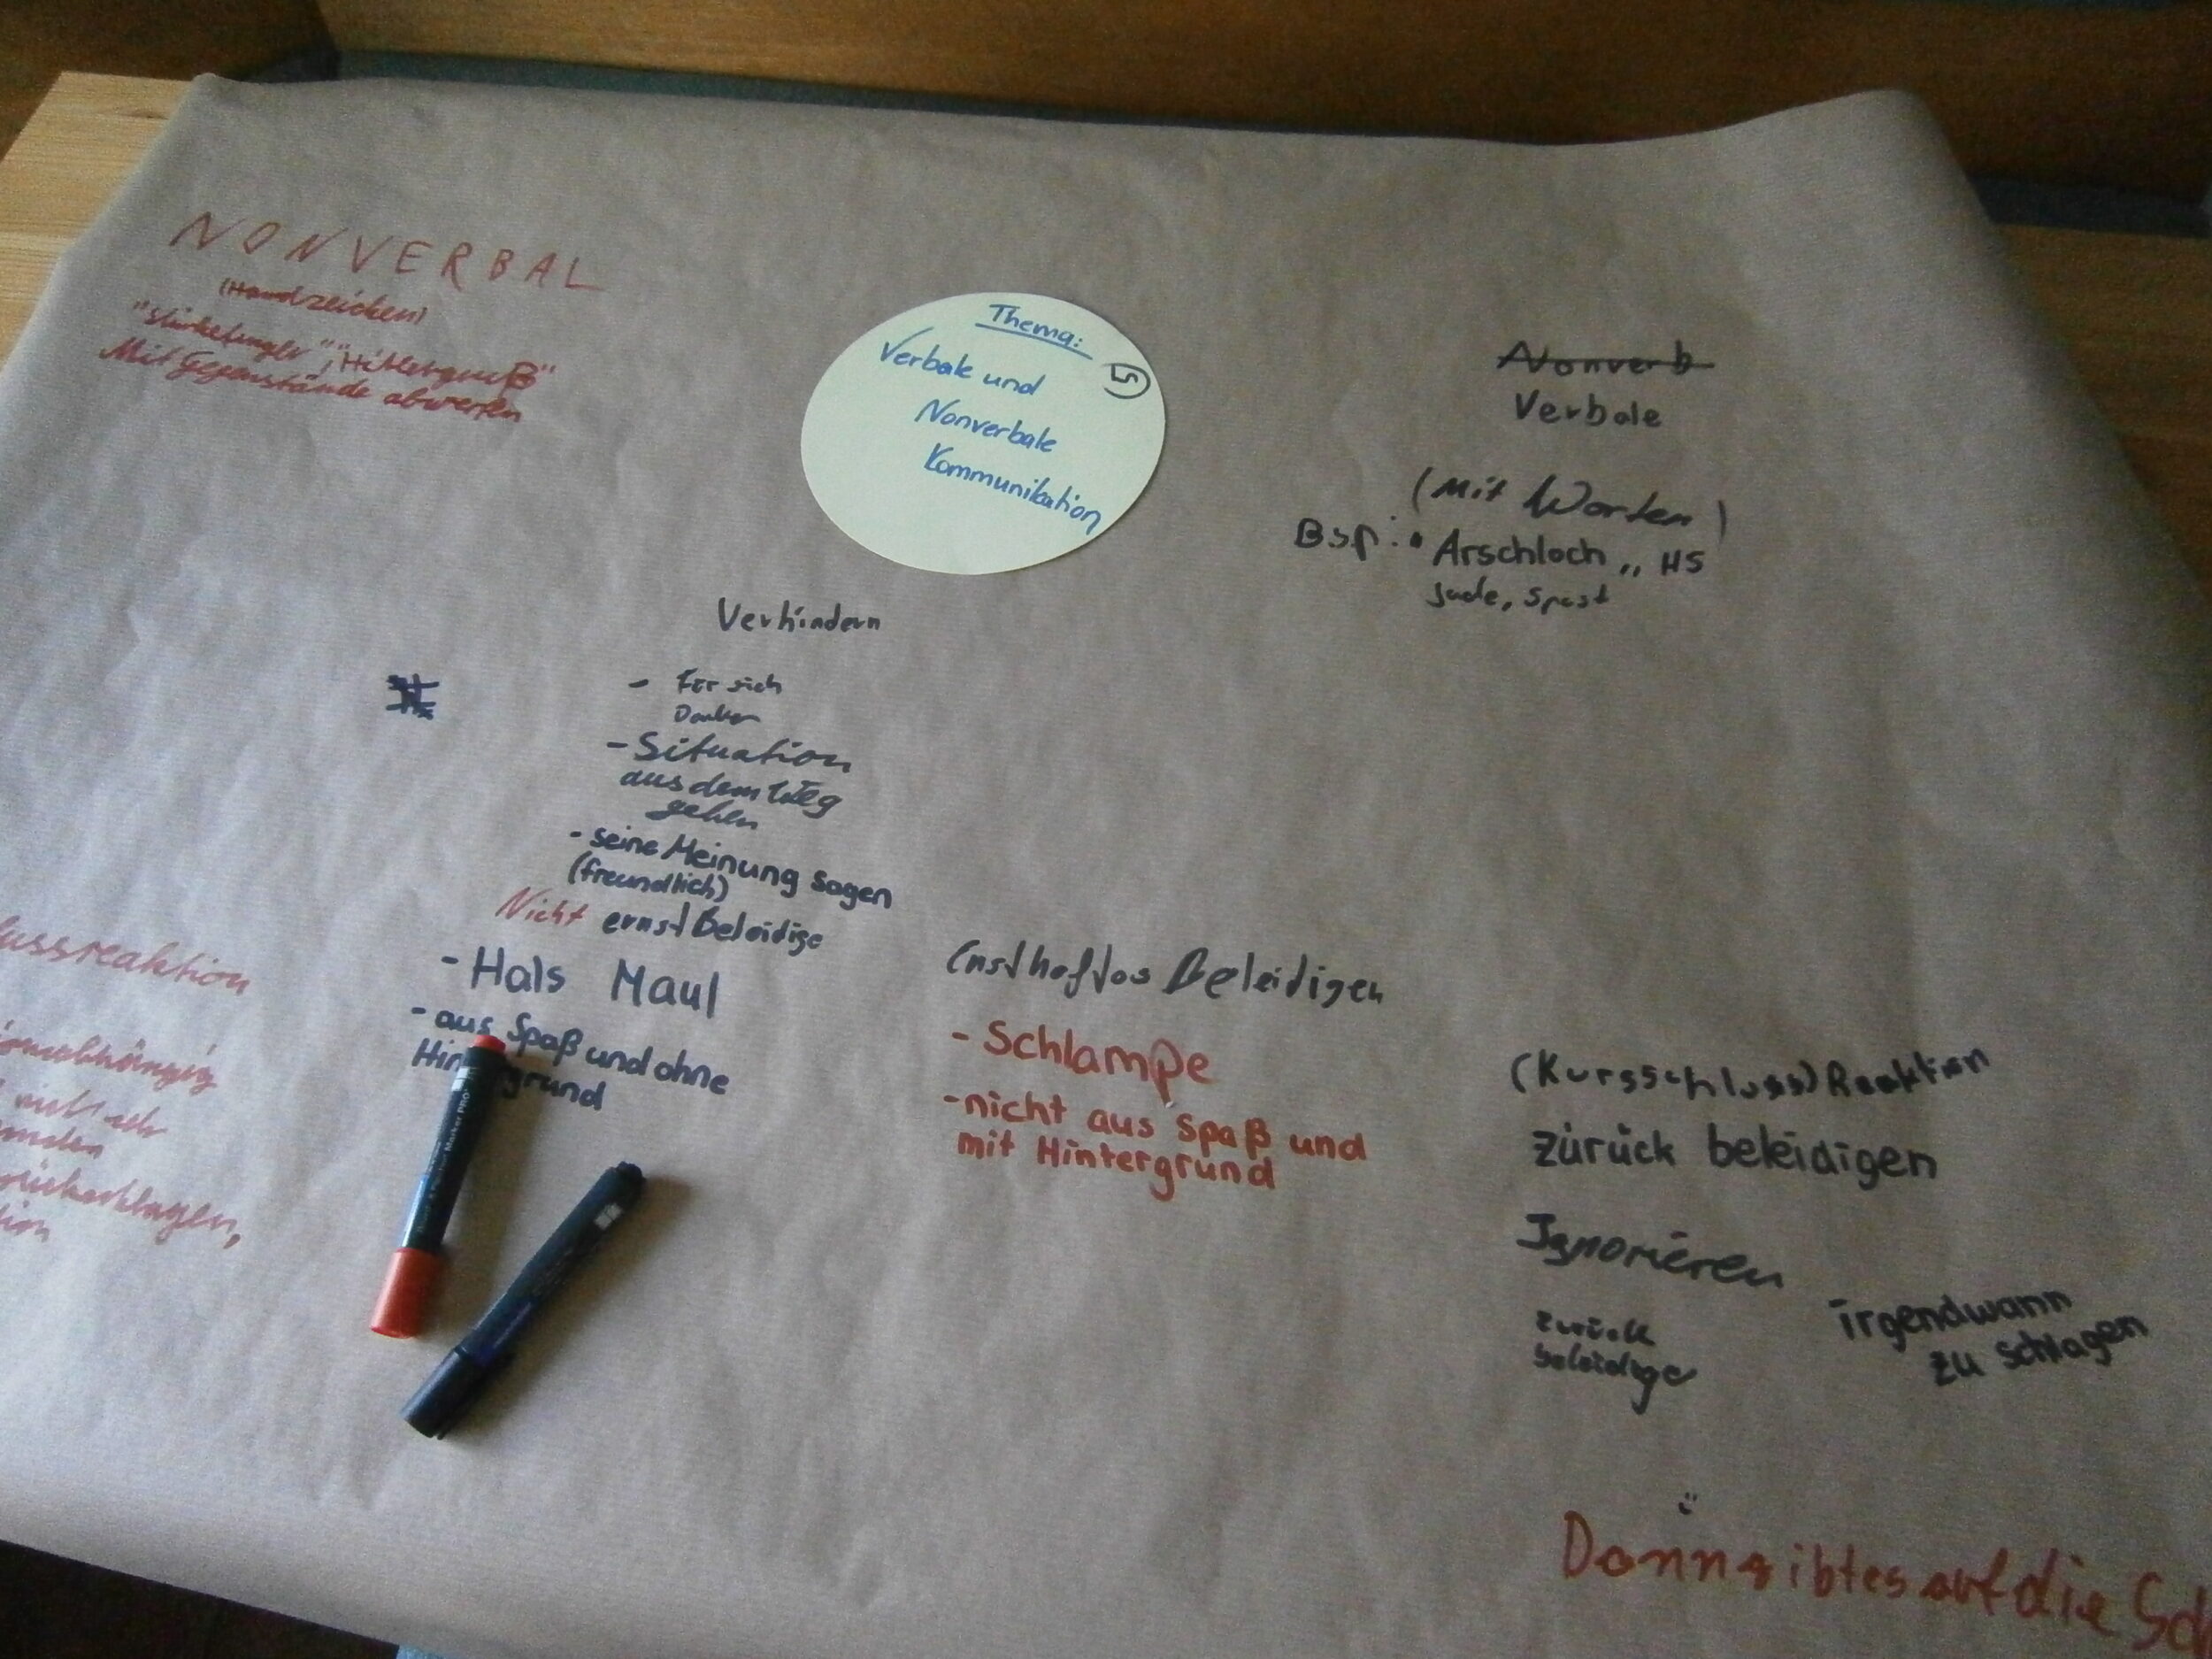 NONVERBAL
(Handzeichen)
"Stinkefinger", "Hitlergruß"
Mit Gegenstände abwerfen
Thema:
Verbale und
Nonverbale
Kommunikation
5
Nonverb
Verbale
(Mit Worten)
Bsp.: • Arschloch,, HS
Jude, Spast
Verhindern
- Für sich
- Situation
aus dem Weg
gehen
- seine Meinung sagen
(freundlich)
Nicht ernst Beleidige
- Hals Maul
- aus Spaß und ohne
Hintergrund
ussreaktion
Beleidigen
- Schlampe
- nicht aus Spaß und
mit Hintergrund
(Kursschluss) Reaktion
zürück beleidigen
Ignorieren
zurück
beleidige
irgendwann
zu schlagen
Dann gibt es auf die Sch